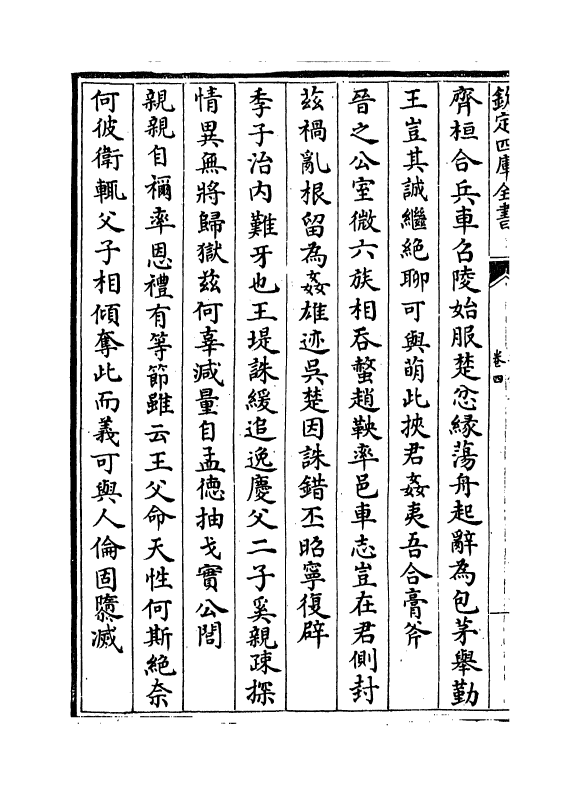 欽定四庫全書
卷四
齊桓合兵車召陵始服楚忿緣蕩舟起辭為包茅舉勤
王豈其誠繼絶聊可與萌此挾君姦夷吾合膏斧
晉之公室微六族相吞螫趙鞅率邑車志豈在君側封
茲禍亂根留為姦雄迹吳楚因誅錯丕昭寧復辟
季子治内難牙也王堤誅緩追逸慶父二子奚親疎探
情異無將歸獄兹何辜減量自孟德抽戈實公閭
親親自禰率恩禮有等節雖云王父命天性何斯絶奈
何彼衛輒父子相傾奪此而義可與人倫固隳滅